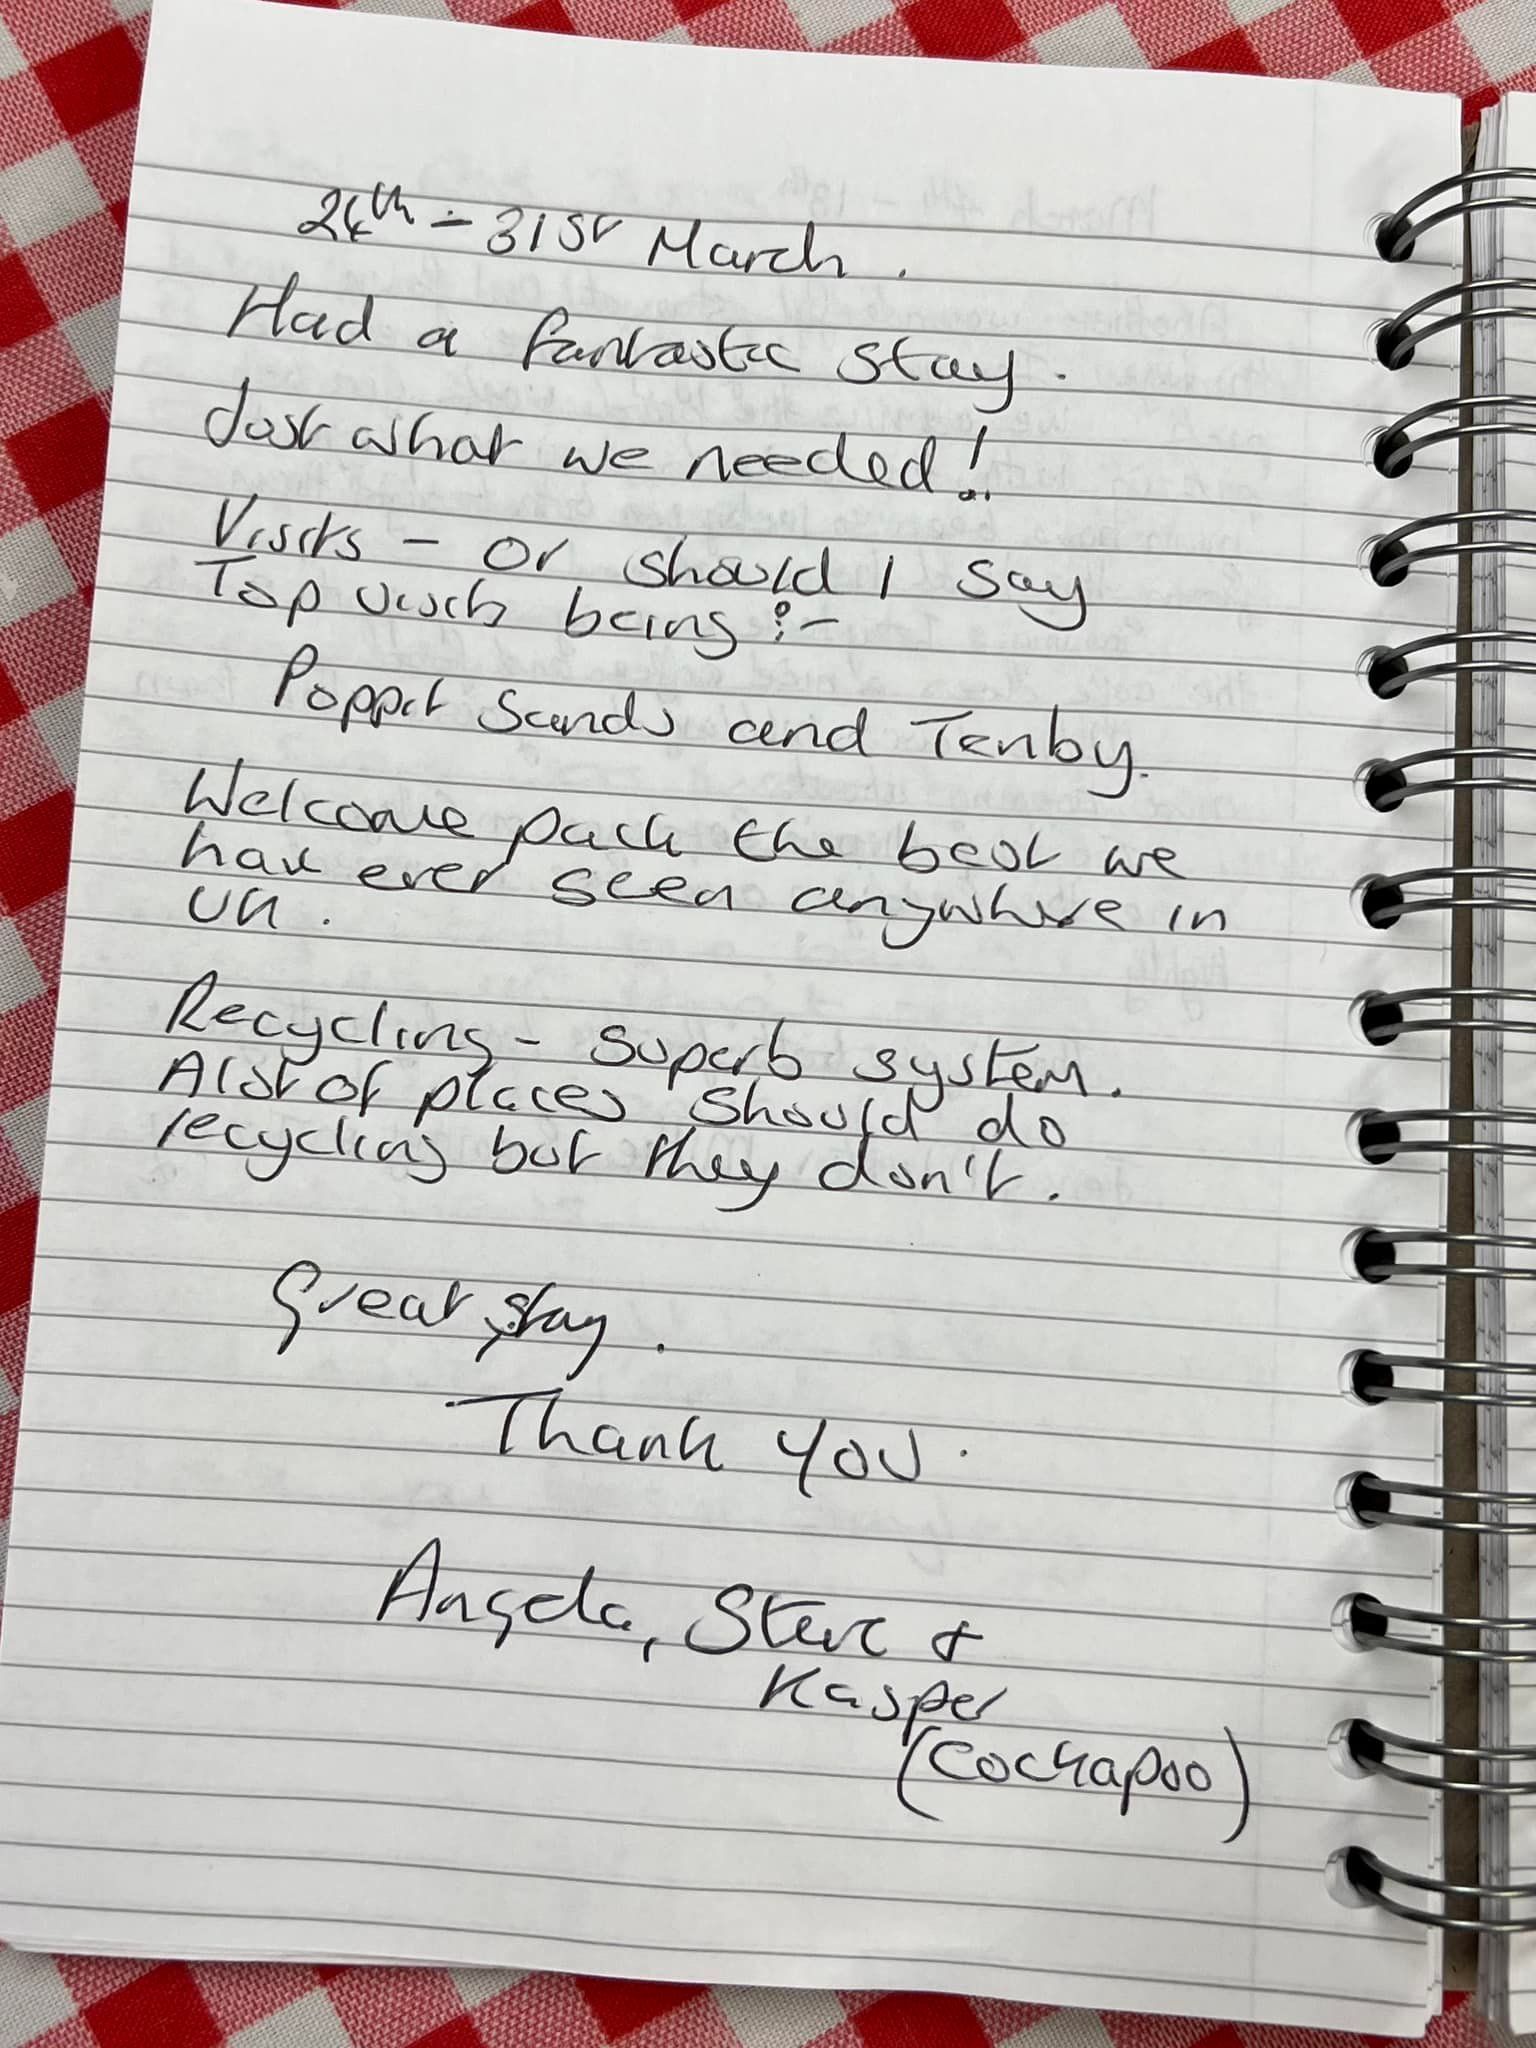 24th - 31st March.
Had a fantastic stay.
Just what we needed!
Visits - or should I say
Top visits being :-
Poppit Sands and Tenby.
Welcome pack the best we
have ever seen anywhere in
UK.
Recycling - superb system.
A lot of places should do
recycling but they don't.
Great stay.
Thank you.
Angela, Steve &
Kasper
(Cockapoo)